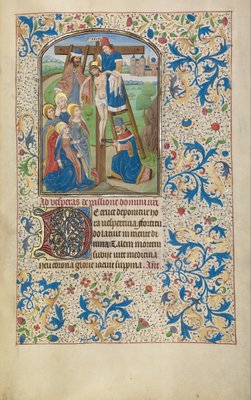 Ad vesperas de passione domini an̄
De cruce deponitur ho
ra vespertina. Fortitu
do latuit in mente di
uina. Talem mortem
subijt vite medicina
heu corona glorie iacuit suppina. Añt